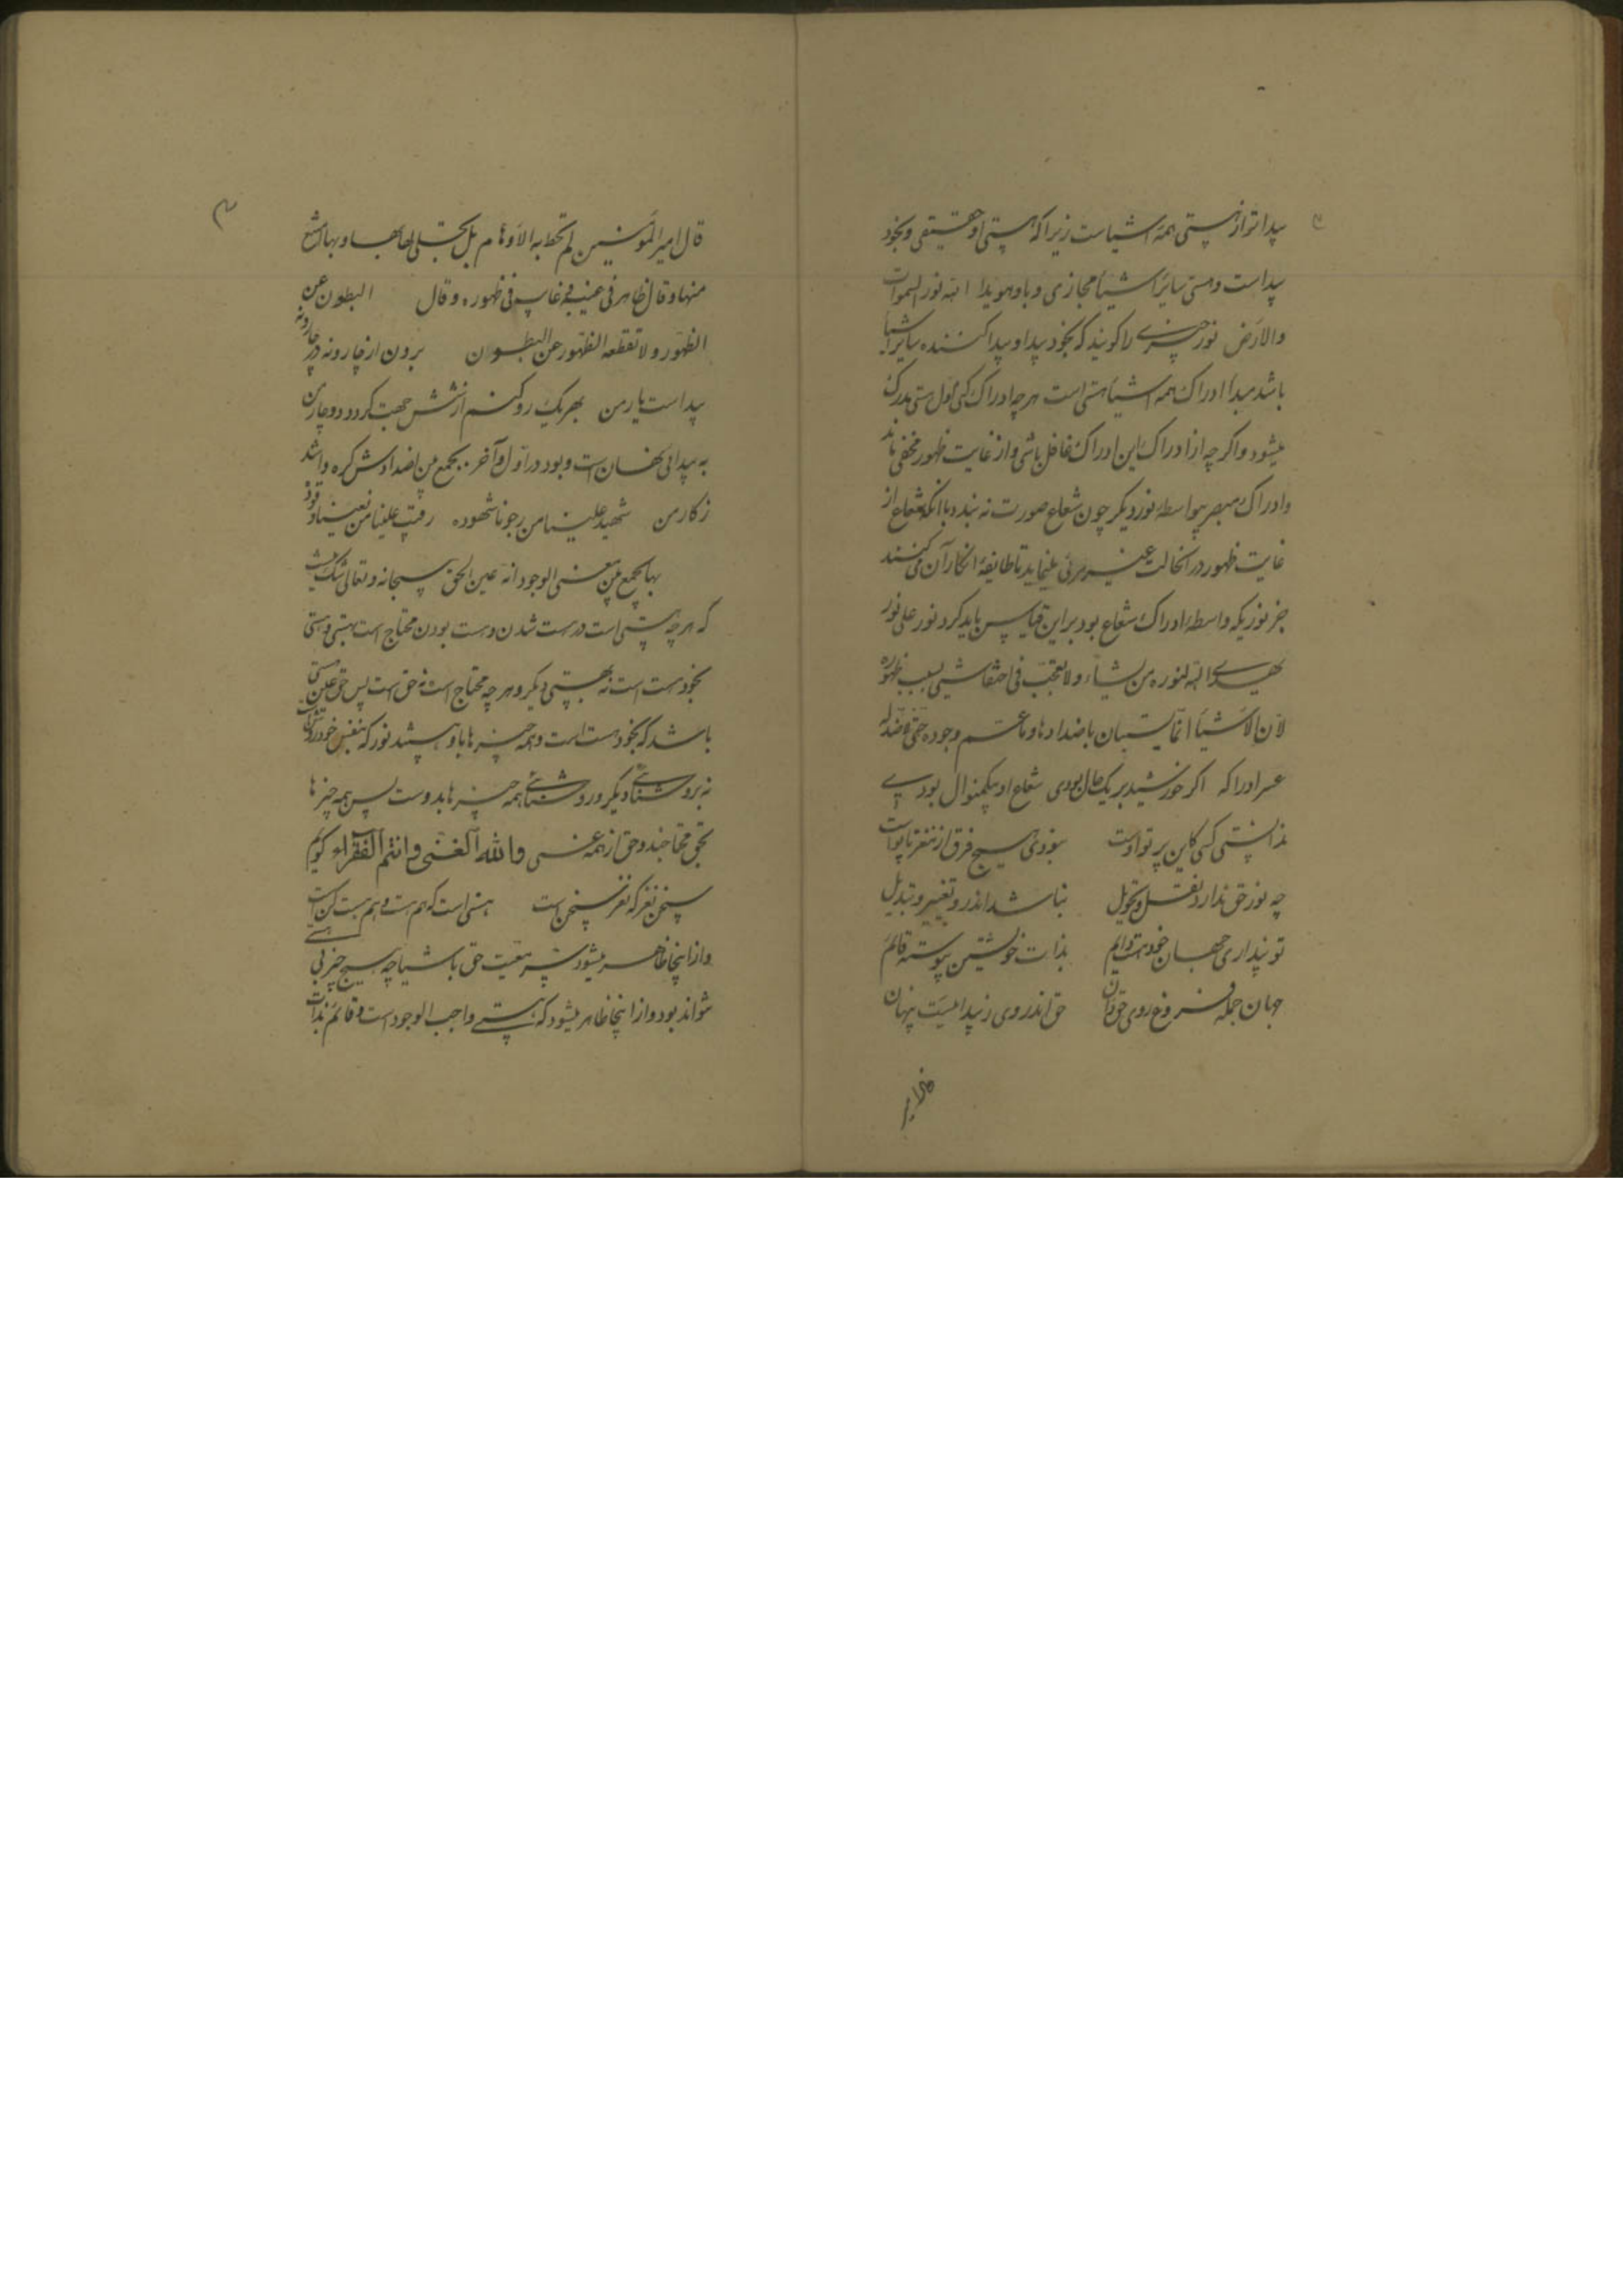 پیداتر از هستی همه اشیاست زیرا که هستی او حقیقی و بخود
پیداست و هستی سایر اشیا مجازی و باو هویدا الله نور السموات
والارض نور چیزی را گویند که بخود پیدا و پیدا کننده سایر اشیا
باشد مبدا ادراک همه اشیا هستی است هر چه ادراک کنی اول هستی مدرک
میشود و اگر چه از ادراک این ادراک غافل باشی و از غایت ظهور مخفی ماند
و ادراک مبصر بواسطه نور دیگر چون شعاع صورت نه بندد با آنکه شعاع از
غایت ظهور در آنحالت غیر مرئی مینماید تا طایفه انکار آن می کنند
جز نوریکه واسطه ادراک شعاع بود بر این قیاس باید کرد نور علی نور
یهدی الله لنوره من یشاء ولا تعجب فی اختفا شیی بسبب ظهوره
لان الاشیا انما یستبان باضدادها و ما عم وجوده حتی لا ضد له
عسر ادراکه اگر خورشید بر یک حال بودی شعاع او بیکمنوال بودی
ندانستی کسی کاین پرتو اوست نبودی هیچ فرق از مغز تا پوست
چه نور حق ندارد نقل و تحویل نباشد اندر و تغییر و تبدیل
تو پنداری جهان خود هست دایم بذات خویشتن پیوسته قائم
جهان جمله فروغ روی حق دان حق اندر وی ز پیدائیست پنهان
قال امیر المؤمنین لم تحط به الاوهام بل تجلی لها بها و بها امتنع
منها و قال ظاهر فی غیب و غایب فی ظهوره و قال البطون عن
الظهور ولا تقطعه الظهور عن البطون برون از چار و نه در چار و نه
پیداست یار من بهر یک رو کنم از شش جهت گردد دوچار من
به پیدایی نهان است و بود در اول و آخر بجمع من اضدادش گره واشد
ز کار من شهید علینا من رجونا شهوده رقیب علینا من تعیننا و
بها لجمع من معنی الوجود انه عین الحق سبحانه و تعالی شک نیست
که هر چه هستی است در هست شدن و هست بودن محتاج است بهستی و هستی
بخود هست است نه بهستی دیگر و هر چه محتاج است نه حق است پس حق عین هستی
باشد که بخود هست است و همه چیزها باو هستند نور که بنفس خود روشن است
نه بروشنائی دیگر و روشنائی همه چیزها بدوست پس همه چیزها
بحق محتاجند و حق از همه غنی والله الغنی وانتم الفقراء گویم
سخن نغز که نغز سخن است هستی است که هم هست و هم هست کن است
و از اینجا ظاهر میشود سر معیت حق با اشیا چه هیچ چیز بی هستی
نتواند بود و از اینجا ظاهر میشود که هستی واجب الوجود است و قائم بذات